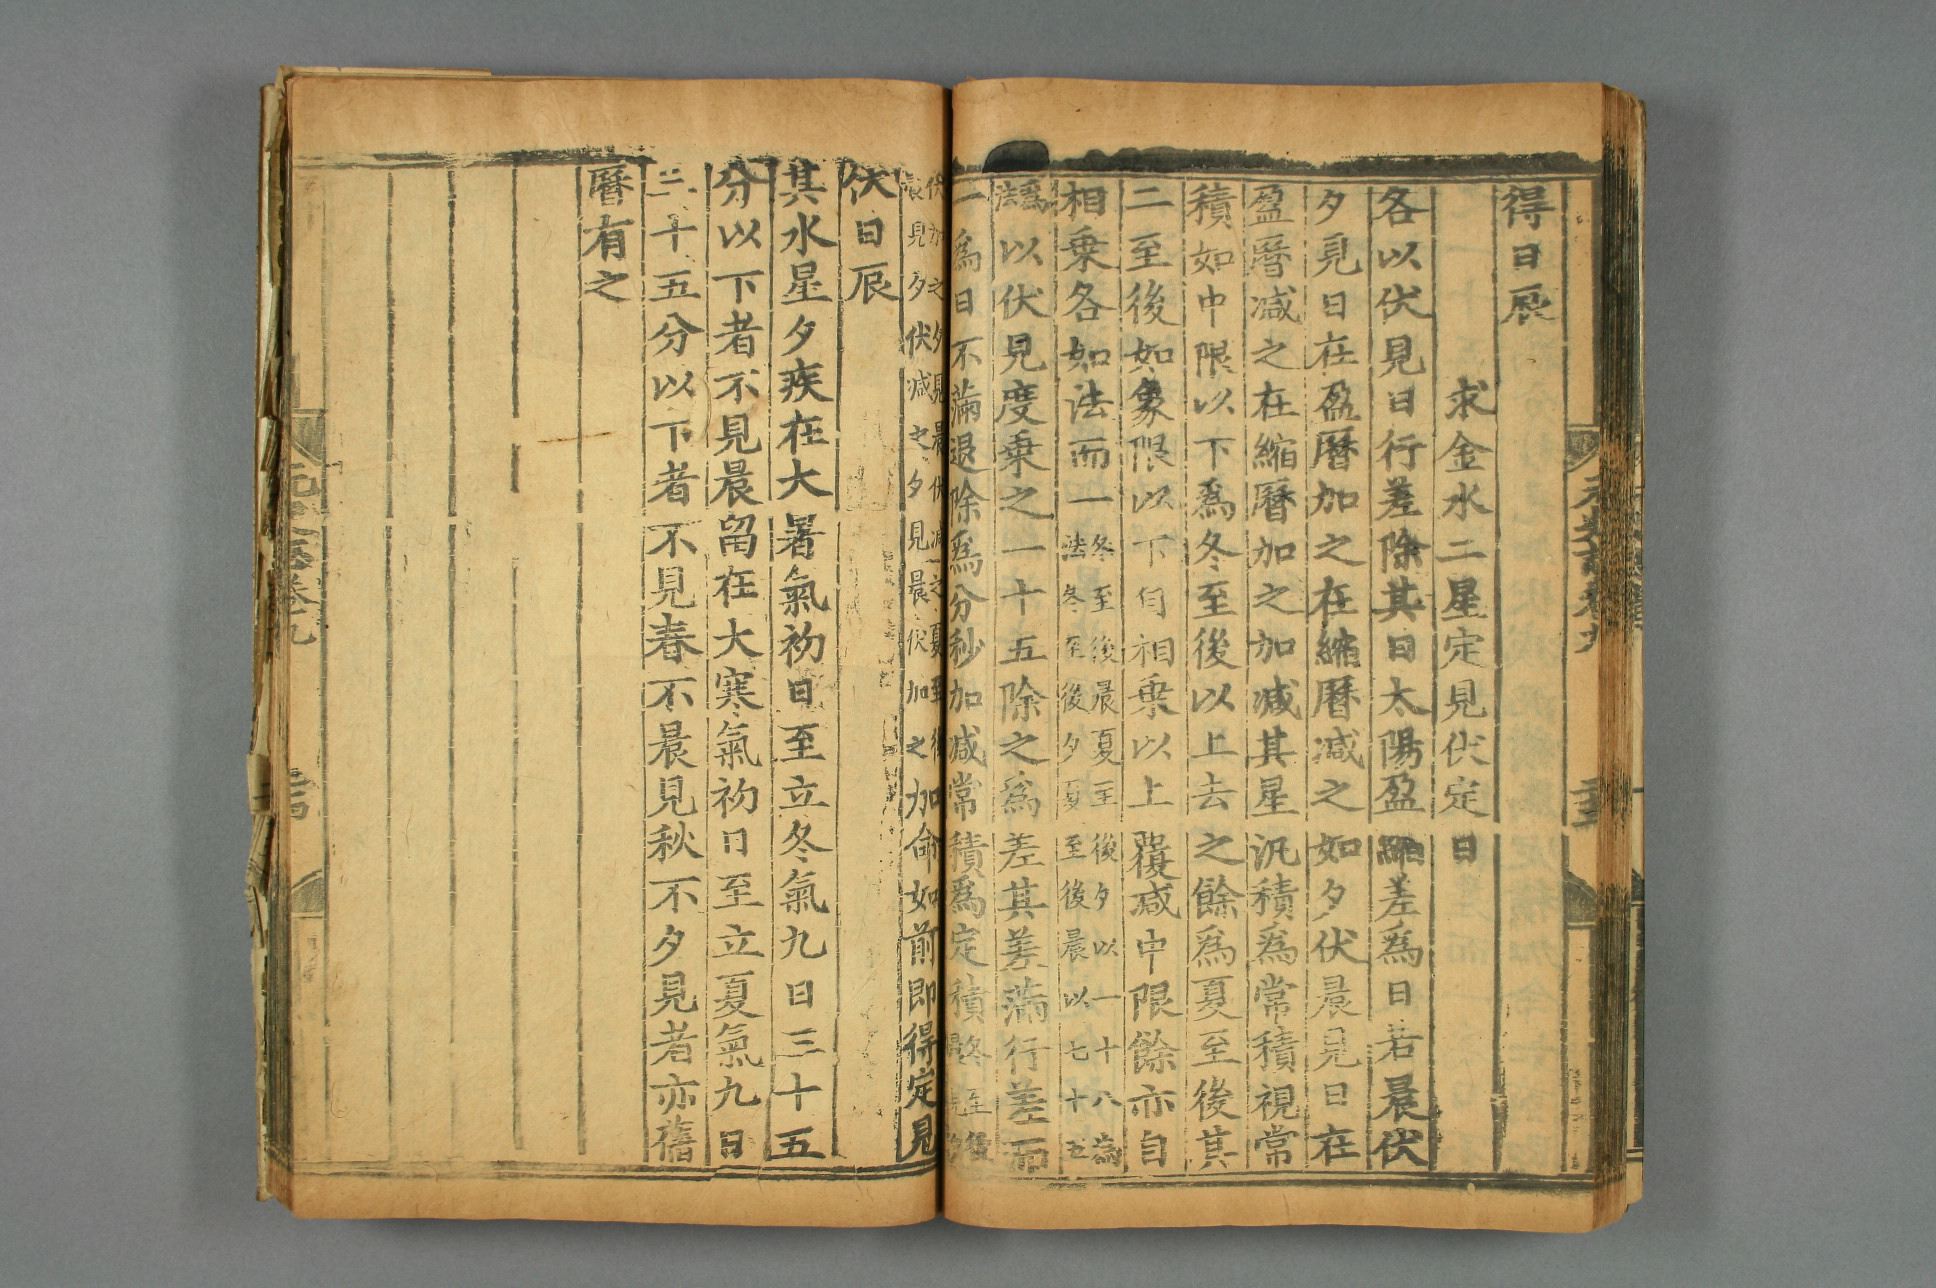 得日辰
求金水二星定見伏定日
各以伏見日行差除其日太陽盈縮差為日若晨伏
夕見日在盈曆加之在縮曆減之如夕伏晨見日在
盈曆減之在縮曆加之加減其星汎積為常積視常
積如中限以下為冬至後以上去之餘為夏至後其
二至後如象限以下自相乗以上覆減中限餘亦自
相乗各如法而一冬至後晨夏至後夕以一十八為
法冬至後夕夏至後晨以七十五
為法以伏見度乗之一十五除之為差其差滿行差而
一為日不滿退除為分秒加減常積為定積冬至後
晨見夕
伏加之夕見晨伏減之夏至後
晨見夕伏減之夕見晨伏加之加命如前即得定見
伏日辰
其水星夕疾在大暑氣初日至立冬氣九日三十五
分以下者不見晨留在大寒氣初日至立夏氣九日
三十五分以下者不見春不晨見秋不夕見者亦舊
曆有之
元史志卷九
元史志卷九
二十四